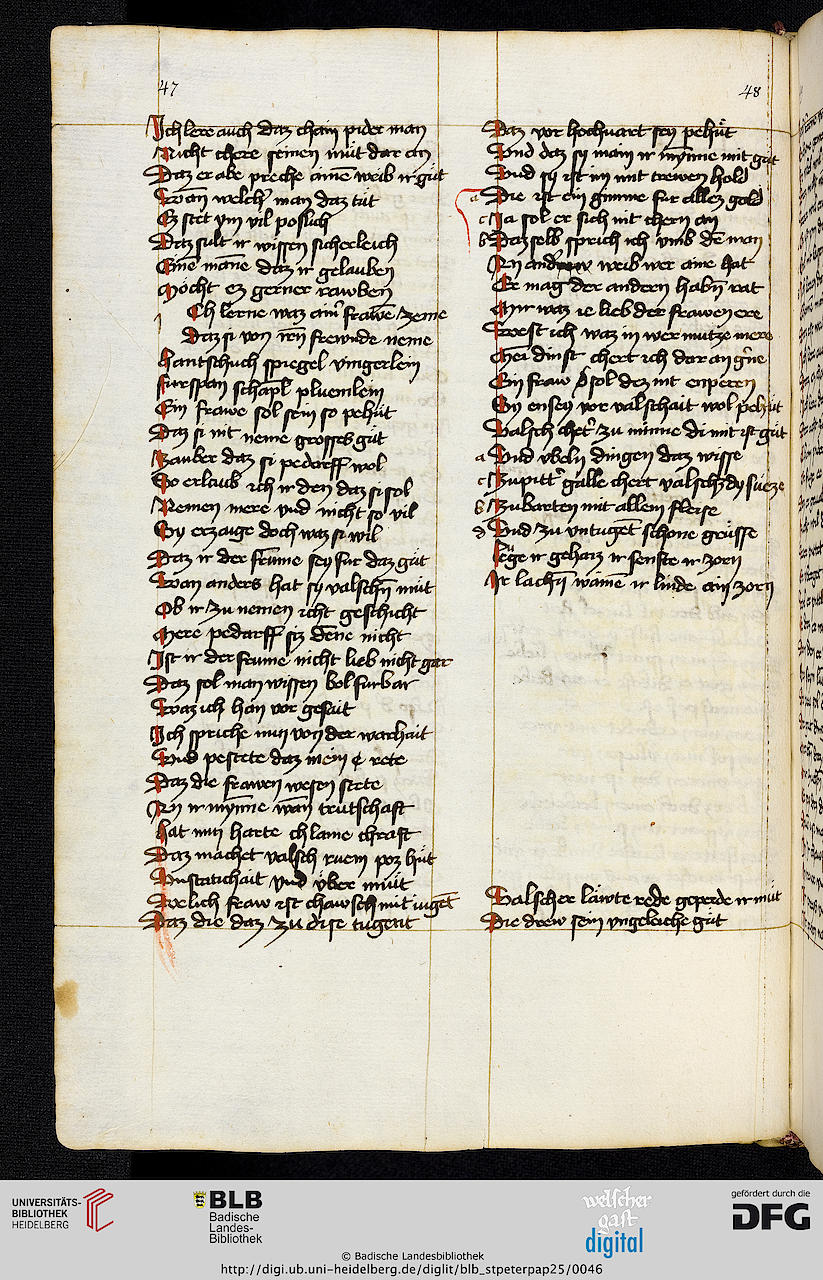 47
Ich lere auch daz chain pider man
Nicht chere seinen mut dar an
Daz er abe preche aine weib ir gut
Wan welch' man daz tut
Ez stet ym vil poslich
Daz sult ir wissen sicherleich
Eine mane daz ir gelauben
Mocht ez gerner rawben
Ch lerne waz ain frawe zeme
Daz si von irn frewnde neme
Hantschuch spiegel vingerlein
Furspan schapl pluemlein
Ein frawe sol sein so pehut
Daz si nit neme grossers gut
Zauber daz si pedarff wol
So erlaub ich ir den daz si sol
Nemen mere vnd nicht so vil
Sy erzaige doch waz si wil
Daz ir der frume sey fur daz gut
Wan anders hat sy valschn mut
Ob ir zu nemen icht geschicht
Mere pedarff siz dene nicht
Ist ir der frume nicht lieb nicht gar
Daz sol man wissen bol furbar
Waz ich han vor gesait
Ich spriche nun von der warhait
Vnd pestete daz mein rete
Daz die frawen wesen stete
An ir mynne wan trutschaft
Hat nun harte chlaine chraft
Daz machet valsch ruem poz hut
Vnstatichait vnd vber mut
Welich fraw ist chawsch mit iuget
Daz die daz zu dise tugent
48
Daz vor hochuart sey pehut
Vnd daz sy main ir mynne mit gut
Vnd sy ist im mit trewen hold
a Die ist ein gimme fur allez gold
c Ja sol er sich nit chern an
b Daz selb sprich ich vmb de man
An weib wer aine hat
Er mag der andern habn rat
Mir waz ie lieb der frawen ere
West ich waz in wer nutze mere
Mei dinst chert ich dar an g'ne
Ein fraw sol dez nit enperen
Sy ensey vor valschait wol pehut
Valsch chet zu minne di nit ist gut
a Vnd vbeln dingen daz wisse
c Zu pitt' galle chert valsch dy sueze
b Zu harten mit allem fleise
d Vnd zu vntuget schone grusse
ir geharz ir senfte ir zorn
Ir lachn waine ir linde ain zorn
Valscher lawte rede geperde ir mut
Die drew sein vngeleiche gut
UNIVERSITÄTS-
BIBLIOTHEK
HEIDELBERG
BLB
Badische
Landes-
Bibliothek
welscher
gast
digital
gefördert durch die
DFG
© Badische Landesbibliothek
http://digi.ub.uni-heidelberg.de/diglit/blb_stpeterpap25/0046